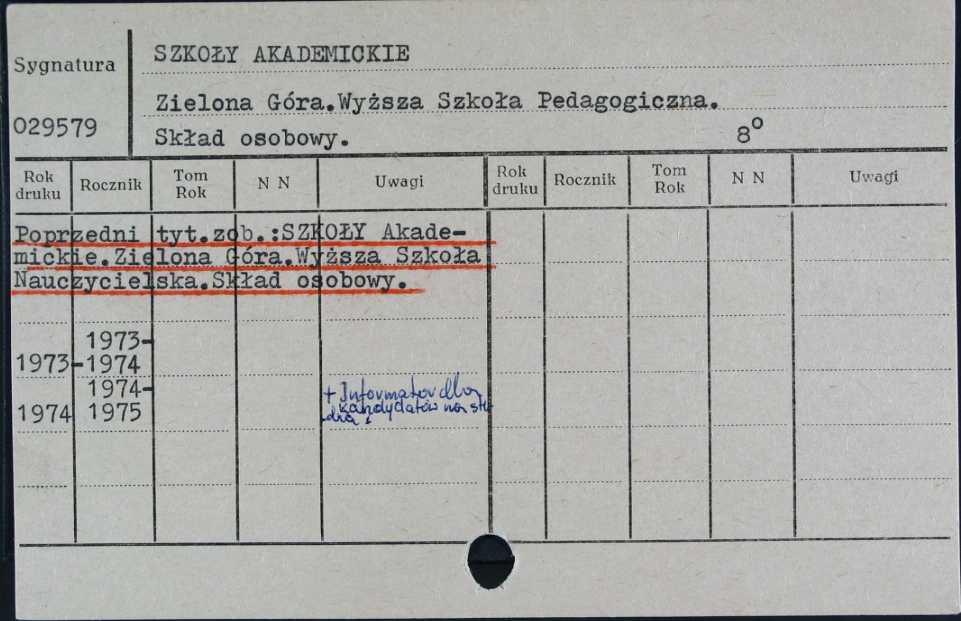 SZKOŁY AKADEMICKIE
Sygnatura
Zielona Góra.Wyższa Szkoła Pedagogiczna.
029579
Skład osobowy. 8º
Rok druku Rocznik Tom Rok N N Uwagi Rok druku Rocznik Tom Rok N N Uwagi
Poprzedni tyt.zob.:SZKOŁY Akade-
mickie.Zielona Góra.Wyższa Szkoła
Nauczycielska.Skład osobowy.
1973-
1973-1974
1974-
1974 1975
+ Informator dla
kandydatów na stu-
dia.